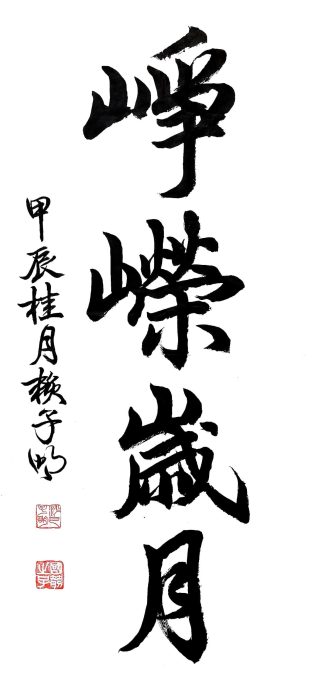 崢嶸歲月
甲辰桂月賴子明